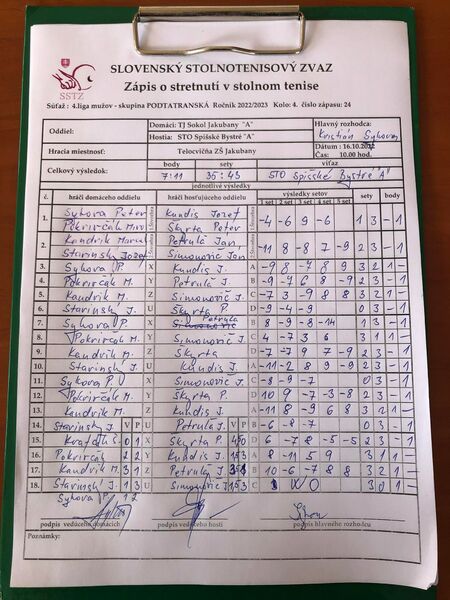 SLOVENSKÝ STOLNOTENISOVÝ ZVAZ
SSTZ
Zápis o stretnutí v stolnom tenise
Súťaž : 4.liga mužov - skupina PODTATRANSKÁ Ročník 2022/2023 Kolo: 4. číslo zápasu: 24
Oddiel: Domáci: TJ Sokol Jakubany "A" Hlavný rozhodca:
Hostia: STO Spišské Bystré "A" Kristián Sykora
Hracia miestnosť: Telocvičňa ZŠ Jakubany Dátum : 16.10.2022
Čas: 10.00 hod.
body sety víťaz
Celkový výsledok: 7:11 35:43 STO Spišské Bystré "A"
jednotlivé výsledky
č. hráči domáceho oddielu hráči hosťujúceho oddielu výsledky setov sety body
1 set 2 set 3 set 4 set 5 set
1. Sykora Peter Kundis Jozef -4 -6 9 -6 1 3 - 1
Pokrivčák Miro Škyrta Peter
2. Kandrik Petruľa Ján -11 8 8 -7 -9 2 3 - 1
Starinský Jozef Simonovič Ján
3. Sykora P. X Kundis J. A -9 8 -4 8 9 3 2 1 -
4. Pokrivčák M. Y Petruľa J. B -9 -7 6 8 -9 2 3 - 1
5. Kandrik M. Z Simonovič J. C -7 3 -9 8 8 3 2 1 -
6. Starinský J. U Škyrta P. D -9 -4 -9 0 3 - 1
7. Sykora P. X Petruľa B 8 -9 -8 -14 1 3 - 1
8. Pokrivčák M. Y Simonovič J. C 4 -7 3 6 3 1 1 -
9. Kandrik M. Z Škyrta D -7 -7 9 7 -9 2 3 - 1
10. Starinský J. U Kundis J. A -11 -2 8 9 -9 2 3 - 1
11. Sykora P. X Simonovič J. C -8 -9 -7 0 3 - 1
12. Pokrivčák M. Y Škyrta P. D 10 9 -7 -3 -8 2 3 - 1
13. Kandrik M. Z Kundis J. A -11 8 -9 6 8 3 2 1 -
14. Starinský J. V P U Petruľa J. V P B -6 -11 -9 0 3 - 1
15. 0 1 X Škyrta P. D 6 -7 8 -5 -5 2 3 - 1
16. Pokrivčák 2 2 Y Kundis J. A 8 5 9 3 1 1 -
17. Kandrik M. 3 1 Z Petruľa J. B 10 -6 -7 8 8 3 2 1 -
18. Starinský J. 1 3 U Simonovič J. C W O 3 0 1 -
Sykora P. 1 2
podpis vedúceho domácich podpis vedúceho hostí podpis hlavného rozhodcu
Poznámky: